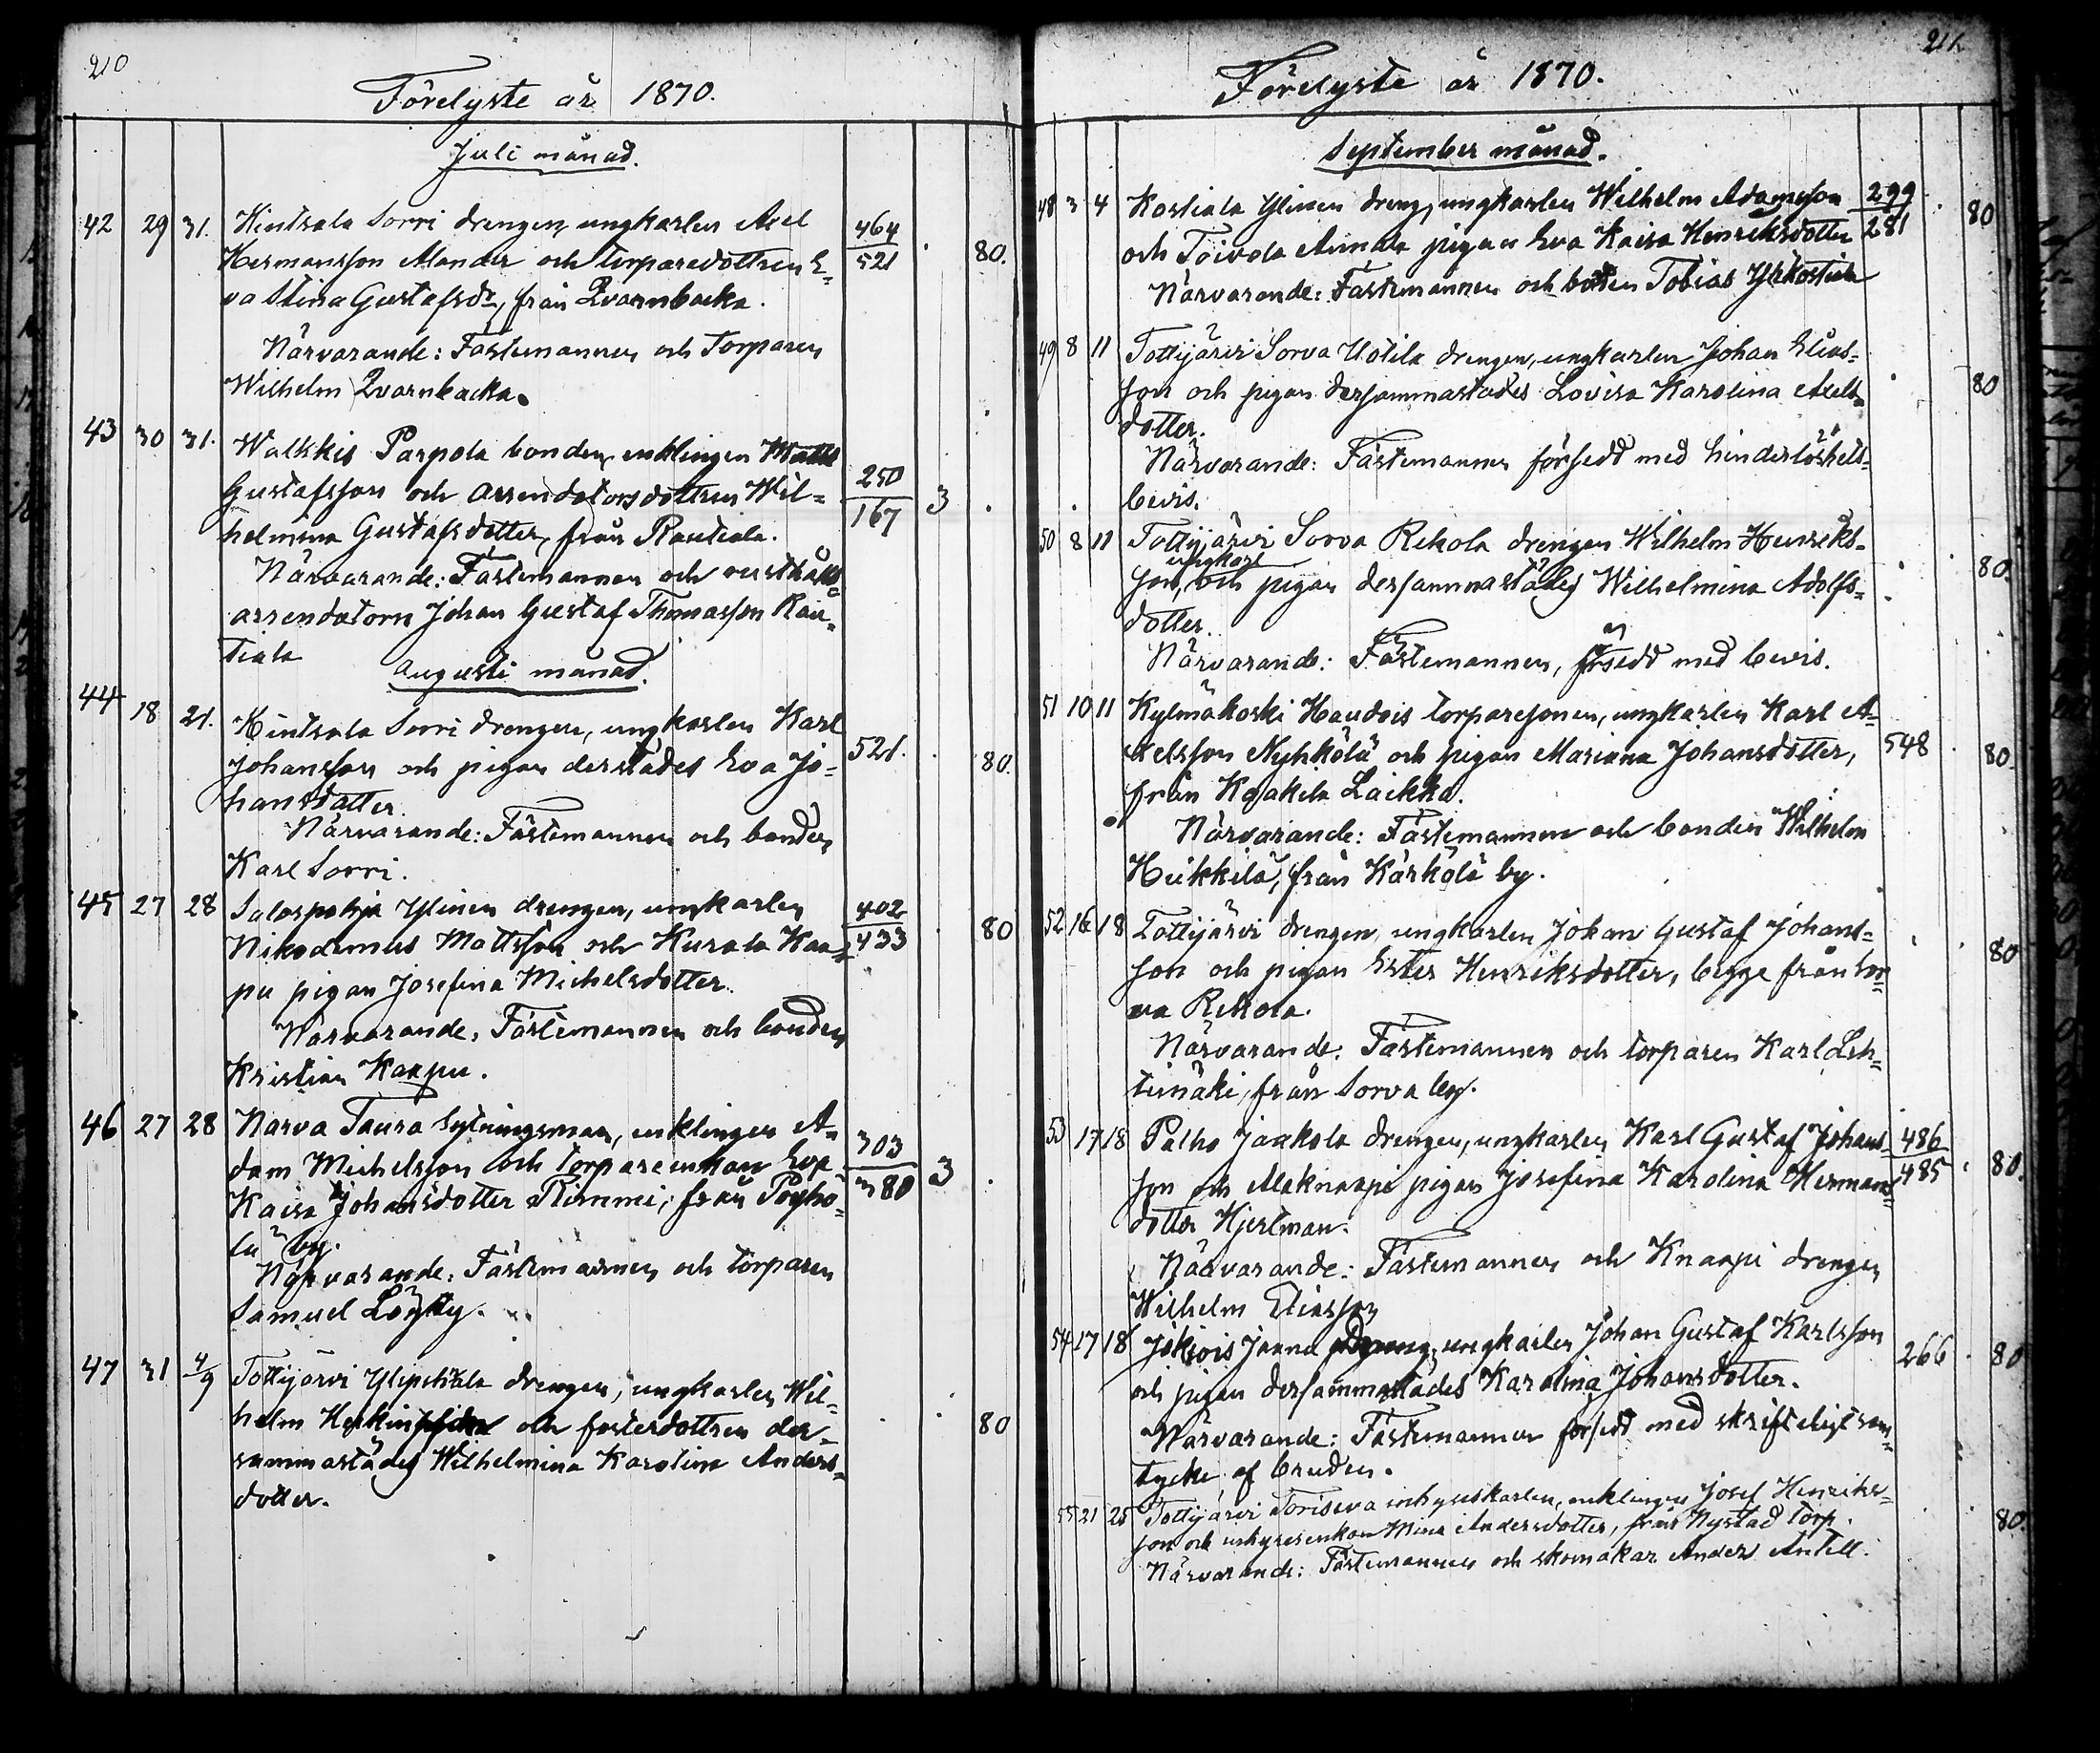 210
Förelyste år 1870.
Juli månad.
42 29 31. Kintsala Sorri drengen, ungkarlen Axel 464
Hermansson Alander och torparedottren E= 521 80.
va Stina Gustafsdr, från Qvarnbacka.
Närvarande: Fästemannen och Torparen
Wilhelm Qvarnbacka.
43 30 31. Walkkis Parpola bonden, enklingen Matts
Gustafsson och arrendatorsdottren Wil= 250 3
helmina Gustafsdotter, från Rautiala. 167
Närvarande: Fästemannen och rusthålls=
arrendatorn Johan Gustaf Thomasson Rau=
tiala
Augusti månad.
44 18 21. Kintsala Sorri drengen, ungkarlen Karl
Johansson och pigan derstädes Eva Jo= 521. 80.
hansdotter.
Närvarande: Fästemannen och bonden
Karl Sorri.
45 27 28 Salospohja Ylinen drengen, ungkarlen 402
Nikodemus Mattsson och Kurala Kaa= 433 80
pu pigan Josefina Michelsdotter.
Närvarande: Fästemannen och bonden
Kristian Kaapu.
46 27 28 Narva Taura sytningsman, enklingen A=
dam Michelsson och torpareenkan Eva 303 3
Kaisa Johansdotter Rimmi, från Pöyhö= 380
lä by.
Närvarande: Fästemannen och torparen
Samuel Löytty.
47 31 4/9 Tottijärvi drengen, ungkarlen Wil=
helm och fosterdottren der= 80
sammastädes Wilhelmina Karolina Anders=
dotter.
211.
Förelyste år 1870.
September månad.
48 3 4 Kostiala Ylinen dreng, ungkarlen Wilhelm Adamsson 299 80
och Toivola Annala pigan Eva Kaisa Henriksdotter 281
Närvarande: Fästemannen och bonden Tobias Ylikostiala
49 8 11 Tottijärvi Sorva Uotila drengen, ungkarlen Johan Elias=
son och pigan dersammastädes Lovisa Karolina Axels= 80
dotter.
Närvarande: Fästemannen försedd med hinderlöshets=
bevis.
50 8 11 Tottijärvi Sorva Rekola drengen Wilhelm Henriks=
ungkarl
son, och pigan dersammastädes Wilhelmina Adolfs= 80.
dotter.
Närvarande: Fästemannen, försedd med bevis.
51 10 11 Kylmäkoski Haudois torparesonen, ungkarlen Karl A=
xelsson Nyhkölä och pigan Mariana Johansdotter, 548 80.
från Kaakila Laikka.
Närvarande: Fästemannen och bonden Wilhelm
Heikkilä, från Kärkölä by.
52 16 18 Tottijärvi drengen, ungkarlen Johan Gustaf Johans=
son och pigan Ester Henriksdotter, begge från Sor= 80
va Rekola.
Närvarande: Fästemannen och torparen Karl Leh=
timäki, från Sorva by.
53 17 18 Palho Jaakola drengen, ungkarlen Karl Gustaf Johans= 486
son och Alaknaapi pigan Josefina Karolina Hermans= 485 80.
dotter Hjertman.
Närvarande: Fästemannen och Knaapi drengen
Wilhelm Eliasson
54 17 18 Jokiois Janna dreng, ungkarlen Johan Gustaf Karlsson 266 80
och pigan dersammastädes Karolina Johansdotter.
Närvarande: Fästemannen försedd med skrifteligt sam=
tycke af bruden.
55 21 25 Tottijärvi Toriseva inhyseskarlen, enklingen Josef Henriks=
son och inhysesenkan Mina Andersdotter, från Nystad torp. 80.
Närvarande: Fästemannen och skomakar Anders Antell.